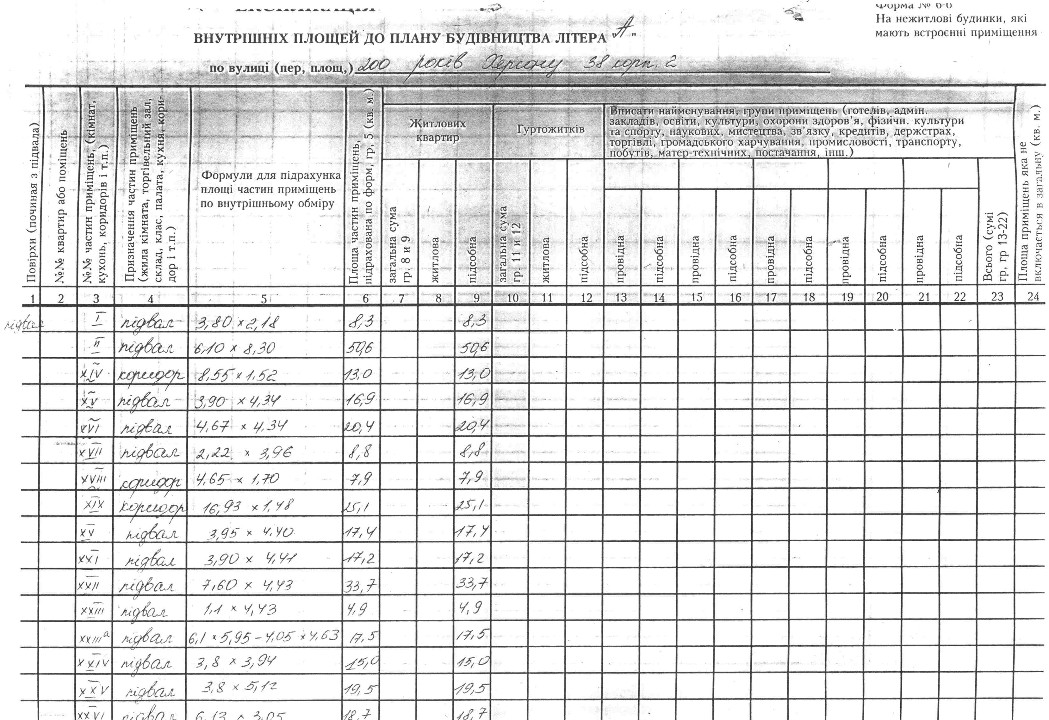 ЕКСПЛІКАЦІЯ
Форма № 6-б
На нежитлові будинки, які
мають встроєнні приміщення
ВНУТРІШНІХ ПЛОЩЕЙ ДО ПЛАНУ БУДІВНИЦТВА ЛІТЕРА "А"
по вулиці (пер, площ,) 200 років Херсону 38 корп. 2
Повірхи (починая з підвала)
№№ квартир або поміщень
№№ частин приміщень, (кімнат, кухонь, коридорів і т.п.)
Призначення частин приміщень (жала кімната, торгівельний зал, склад, клас, палата, кухня, коридор і т.п.)
Формули для підрахунка
площі частин приміщень
по внутрішньому обміру
Площа частин приміщень, підрахована по форм, гр. 5 (кв. м.)
Житлових
квартир
загальна сума гр. 8 и 9
житлова
підсобна
Гуртожитків
загальна сума гр. 11 и 12
житлова
підсобна
Вписати найменування, групи приміщень (готелів, адмін.
закладів, освіти, культури, охорони здоров'я, фізичн. культури
та спорту, наукових, мистецтва, зв'язку, кредитів, держстрах,
торгівлі, громадського харчування, промисловості, транспорту,
побутів, матер-технічних, постачання, інш.)
провідна
підсобна
провідна
підсобна
провідна
підсобна
провідна
підсобна
провідна
підсобна
Всього (сумі гр, гр 13-22)
Площа приміщень яка не включається в загальну (кв. м.)
1 2 3 4 5 6 7 8 9 10 11 12 13 14 15 16 17 18 19 20 21 22 23 24
підвал I підвал 3,80 × 2,18 8,3 8,3
II підвал 6,10 × 8,30 50,6 50,6
XIV коридор 8,55 × 1,52 13,0 13,0
XV підвал 3,90 × 4,34 16,9 16,9
XVI підвал 4,67 × 4,34 20,4 20,4
XVII підвал 2,22 × 3,96 8,8 8,8
XVIII коридор 4,65 × 1,70 7,9 7,9
XIX коридор 16,93 × 1,48 25,1 25,1
XX підвал 3,95 × 4,40 17,4 17,4
XXI підвал 3,90 × 4,41 17,2 17,2
XXII підвал 7,60 × 4,43 33,7 33,7
XXIII підвал 1,1 × 4,43 4,9 4,9
XXIIIа підвал 6,1 × 5,95 - 4,05 × 4,63 17,5 17,5
XXIV підвал 3,8 × 3,94 15,0 15,0
XXV підвал 3,8 × 5,12 19,5 19,5
XXVI підвал 6,13 × 3,05 18,7 18,7